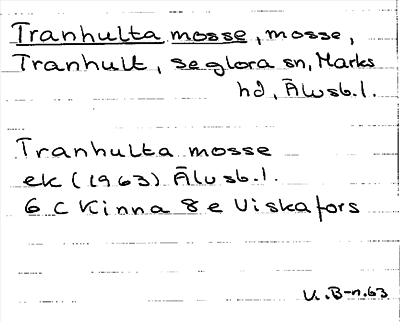 Tranhulta mosse, mosse,
Tranhult, Seglora sn, Marks
hd, Älvsb.l.
Tranhulta mosse
ek (1963) Älvsb.l.
6 C Kinna 8 e Viskafors
U.B-n.63